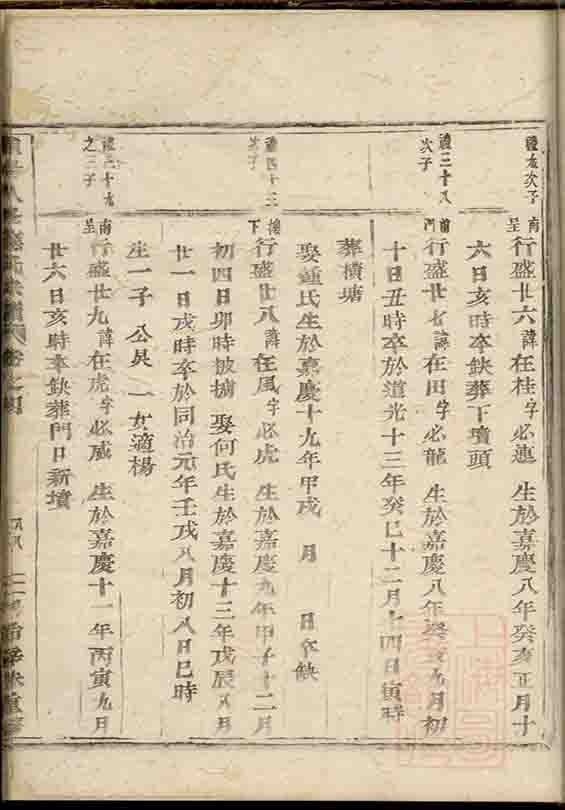 禮友次子
南呈行盛廿六諱在桂字必進 生於嘉慶八年癸亥正月十
六日亥時卒缺葬下墳頭
禮三十八次子
前門行盛廿七諱在田字必龍 生於嘉慶八年癸亥九月初
十日丑時卒於道光十三年癸巳十二月十四日寅時
葬橫塘
娶鍾氏生於嘉慶十九年甲戌 月 日卒缺
禮四十三次子
下行盛廿八諱在風字必虎 生於嘉慶九年甲子十二月
初四日卯時被擄 娶何氏生於嘉慶十三年戊辰八月
廿一日戌時卒於同治元年壬戌八月初八日巳時
生一子 公吳 一女適楊
禮三十九之三子
南呈行盛廿九諱在虎字必威 生於嘉慶十一年丙寅九月
廿六日亥時卒缺葬門日新墳
卷之四